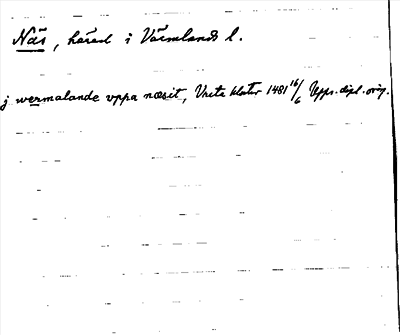 Näs, härad i Värmlands l.
j wermalande vppa næsit, Vreta kloster 1481 16/6 Upps. dipl. orig.